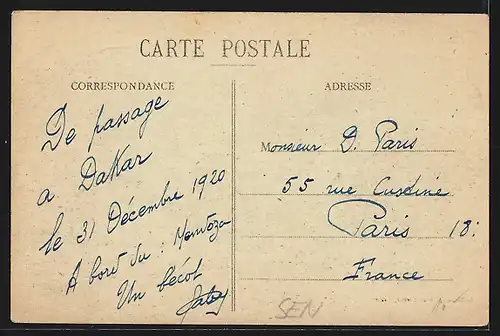 CARTE POSTALE
CORRESPONDANCE
ADRESSE
De passage
a Dakar
le 31 Décembre 1920
A bord du : Mendoza
Un bécot
Monsieur D. Paris
55 rue Custine
Paris 18.
France
SEN